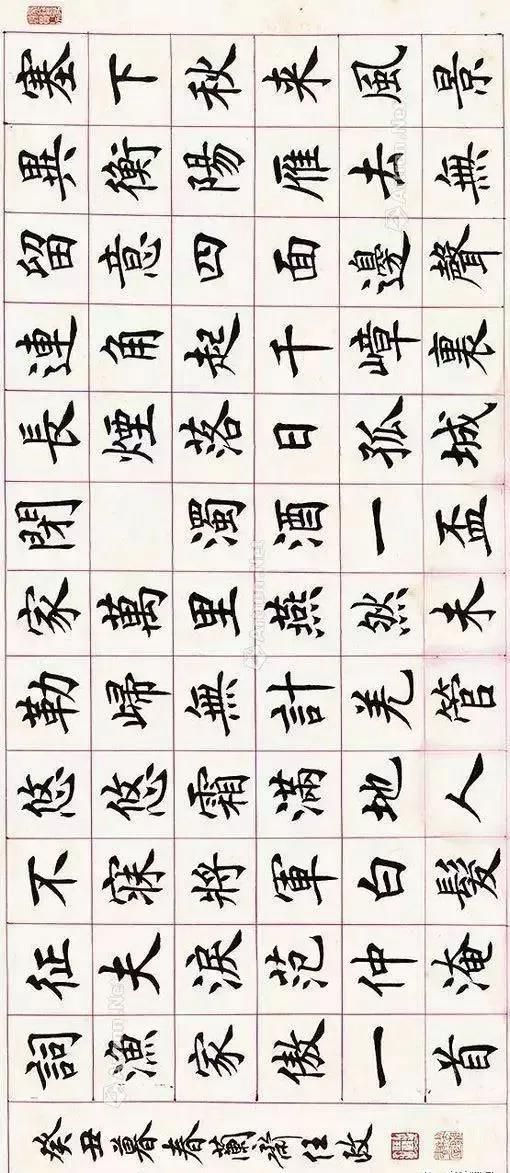 塞下秋来風景
異衡陽雁去無
留意四面邊聲
連角起千嶂裏
長煙落日孤城
閉 濁酒一盃
家萬里燕然未
勒歸無計羌管
悠悠霜滿地人
不寐將軍白髮
征夫淚范仲淹
詞漁家傲一首
癸丑暮春蘭齋任政
Artron.Net